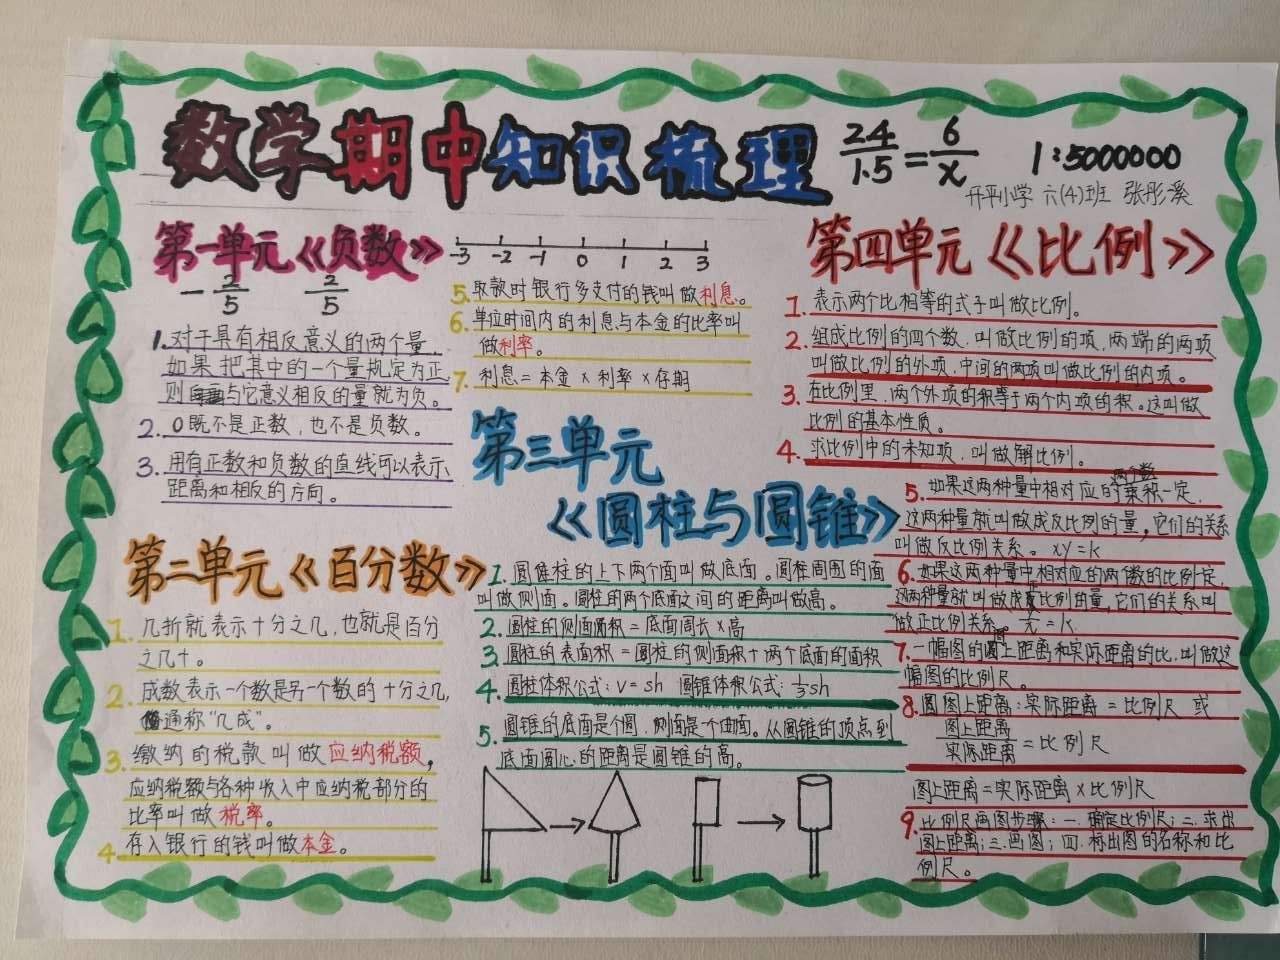 数学期中知识梳理
24/1.5=6/x
1:5000000
开平小学 六(4)班 张彤溪
第一单元《负数》
-2/5 2/5
-3 -2 -1 0 1 2 3
1.对于具有相反意义的两个量,
如果把其中的一个量规定为正
则与它意义相反的量就为负。
2.0既不是正数,也不是负数。
3.用有正数和负数的直线可以表示
距离和相反的方向。
第二单元《百分数》
1.几折就表示十分之几,也就是百分
之几十。
2.成数表示一个数是另一个数的十分之几,
通称“几成”。
3.缴纳的税款叫做应纳税额,
应纳税额与各种收入中应纳税部分的
比率叫做税率。
4.存入银行的钱叫做本金。
5.取款时银行多支付的钱叫做利息。
6.单位时间内的利息与本金的比率叫
做利率。
7.利息=本金×利率×存期
第三单元
《圆柱与圆锥》
1.圆锥柱的上下两个面叫做底面。圆柱周围的面
叫做侧面。圆柱的两个底面之间的距离叫做高。
2.圆柱的侧面面积=底面周长×高
3.圆柱的表面积=圆柱的侧面积+两个底面的面积
4.圆柱体积公式:V=sh 圆锥体积公式:1/3sh
5.圆锥的底面是个圆,侧面是一个曲面。从圆锥的顶点到
底面圆心的距离是圆锥的高。
第四单元《比例》
1.表示两个比相等的式子叫做比例。
2.组成比例的四个数,叫做比例的项,两端的两项
叫做比例的外项,中间的两项叫做比例的内项。
3.在比例里,两个外项的积等于两个内项的积。这叫做
比例的基本性质。
4.求比例中的未知项,叫做解比例。
5.如果这两种量中相对应的两个数乘积一定,
这两种量就叫做成反比例的量,它们的关系
叫做反比例关系。xy=k
6.如果这两种量中相对应的两个数的比例一定,
这两种量就叫做成正比例的量,它们的关系叫
做正比例关系。=k
7.一幅图的图上距离和实际距离的比,叫做这
幅图的比例尺。
8.图上距离:实际距离=比例尺 或
图上距离/实际距离=比例尺
图上距离=实际距离×比例尺
9.比例尺画图步骤:一.确定比例尺;二.求出
图上距离;三.画图;四.标出图的名称和比
例尺。